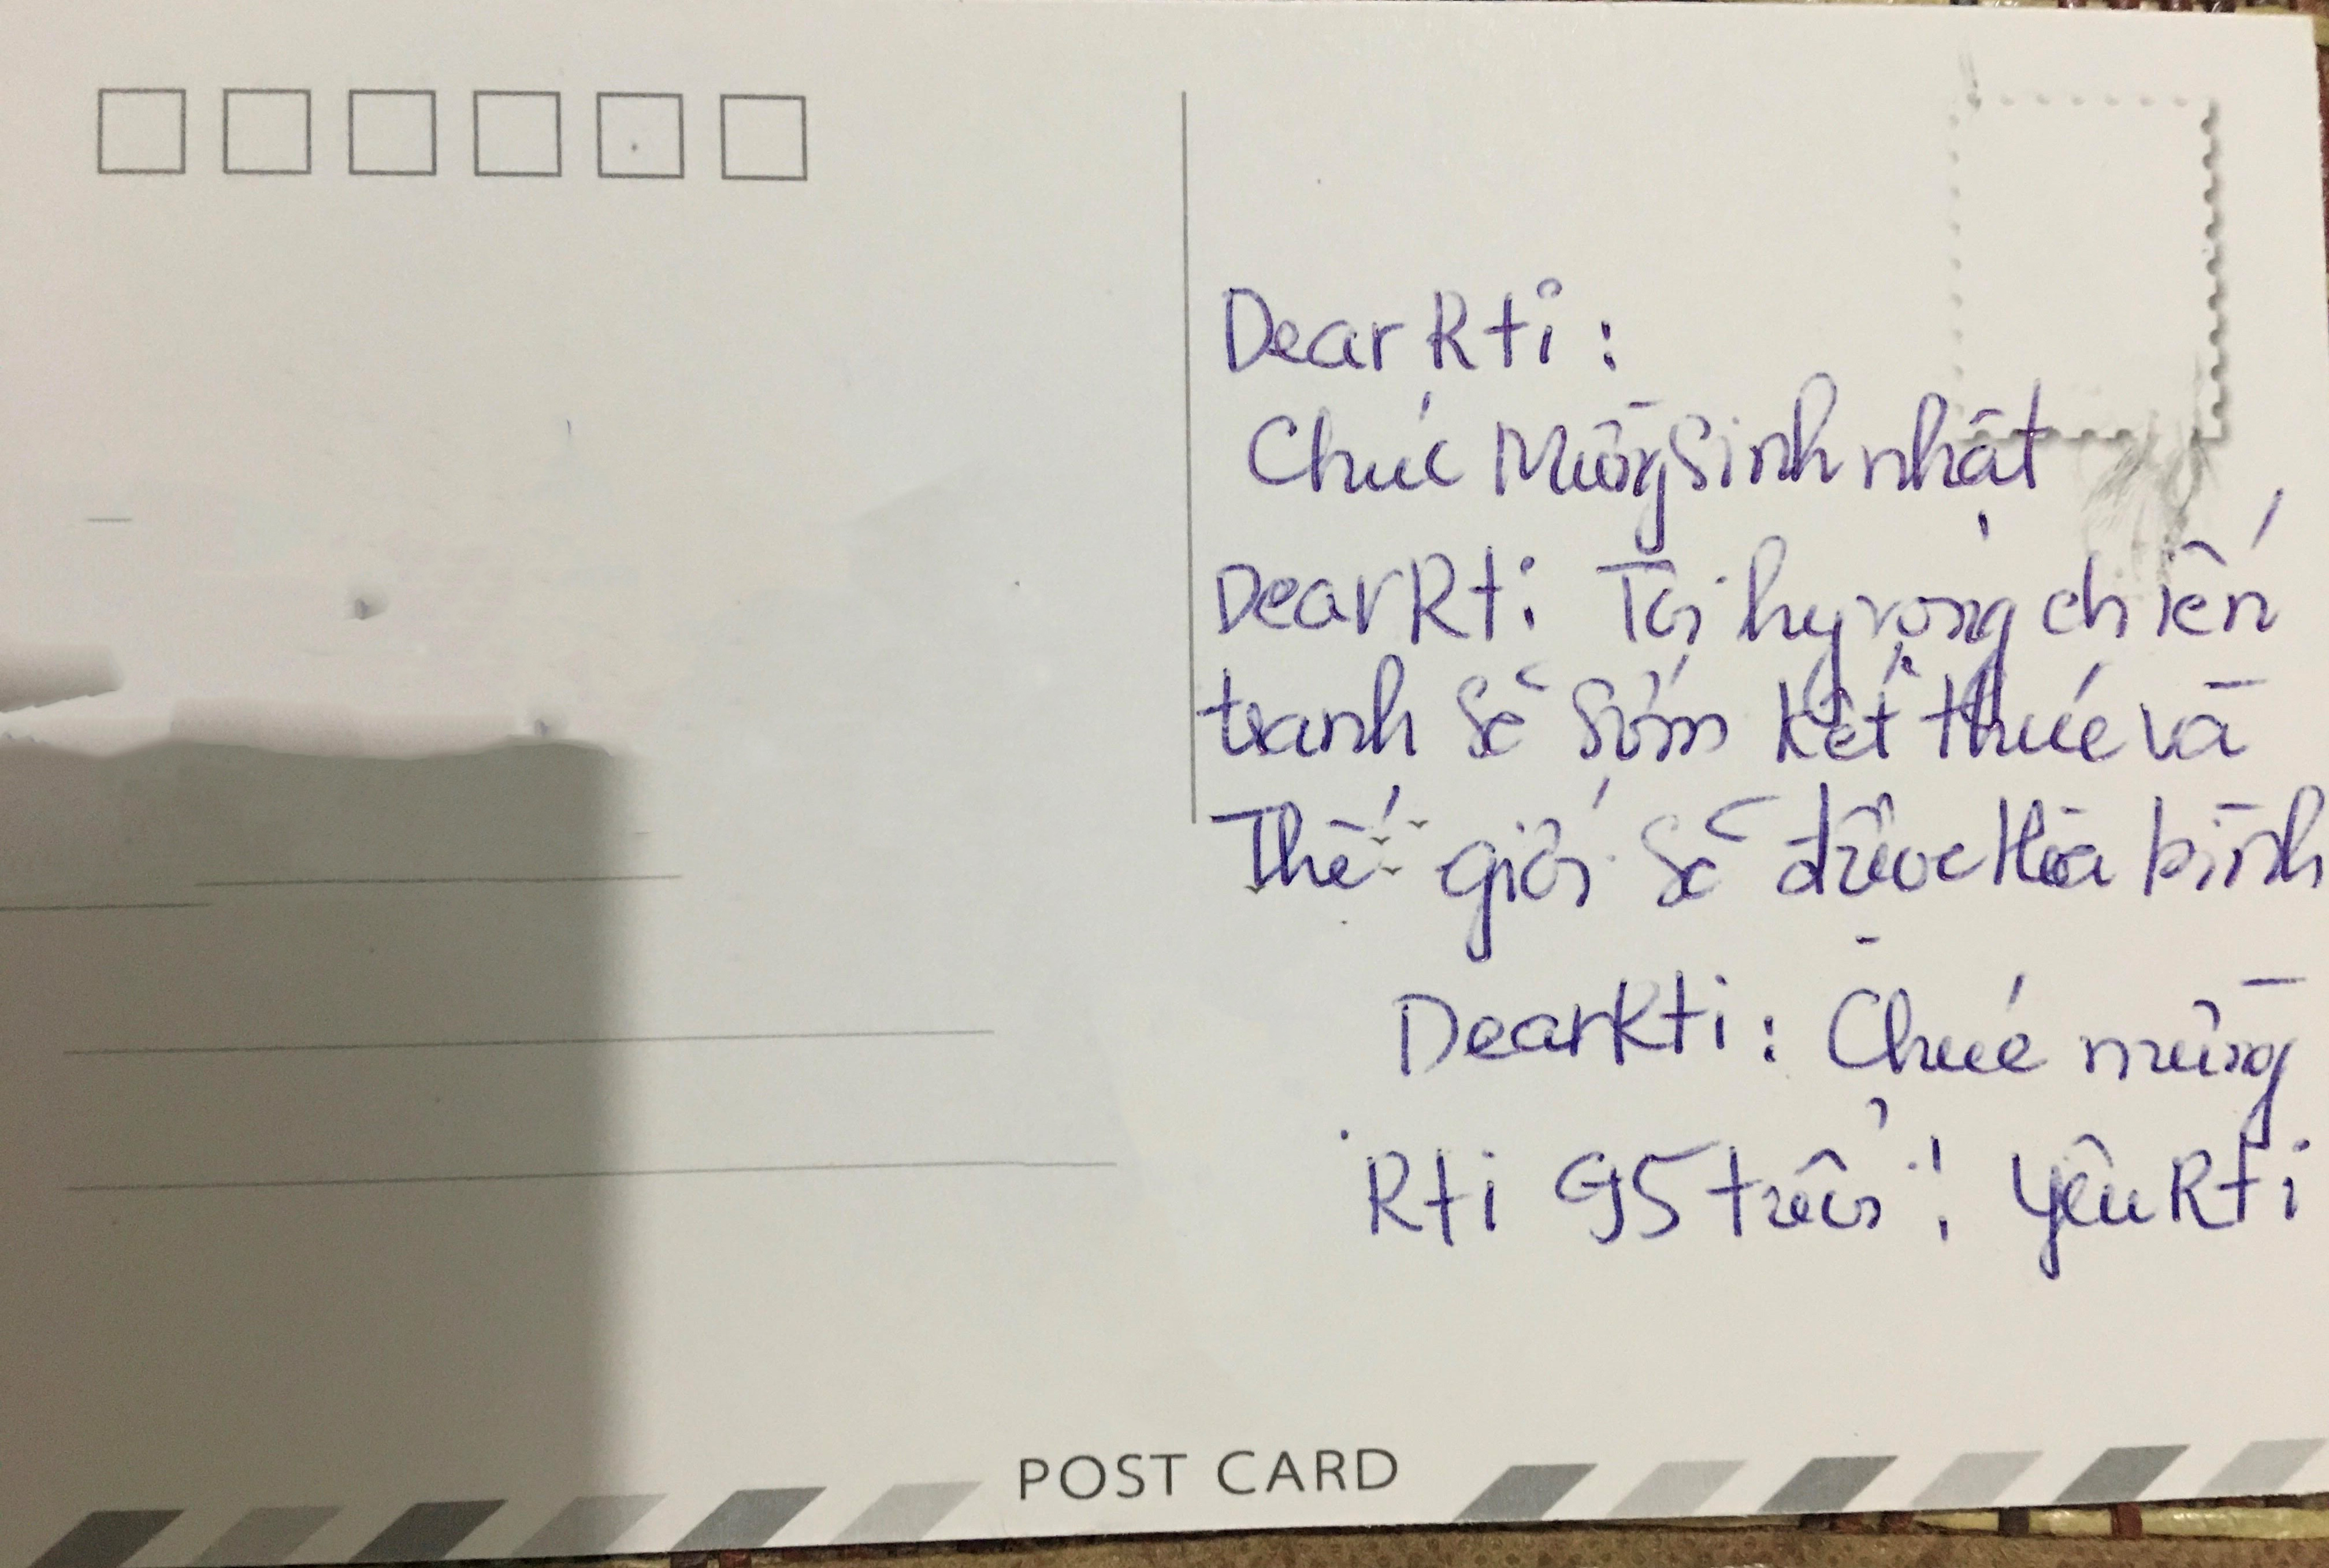 Dear Rti:
Chúc Mừng Sinh nhật
Dear Rti: Tôi hy vọng chiến
tranh sẽ sớm kết thúc và
Thế giới sẽ được Hòa bình
Dear Rti: Chúc mừng
Rti 95 tuổi! Yêu Rti
POST CARD